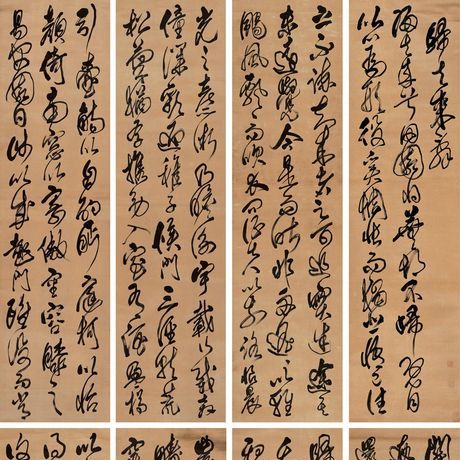 歸去來辭
歸去來兮田園將蕪胡不歸既自
以心為形役奚惆悵而獨悲悟已往
之不諫知來者之可追實迷途其
未遠覺今是而昨非舟遙遙以輕
颺風飄飄而吹衣問征夫以前路恨晨
光之熹微乃瞻衡宇載欣載奔
僮僕歡迎稚子候門三徑就荒
松菊猶存攜幼入室有酒盈樽
引壺觴以自酌眄庭柯以怡
顏倚南窗以寄傲審容膝之
易安園日涉以成趣門雖設而常